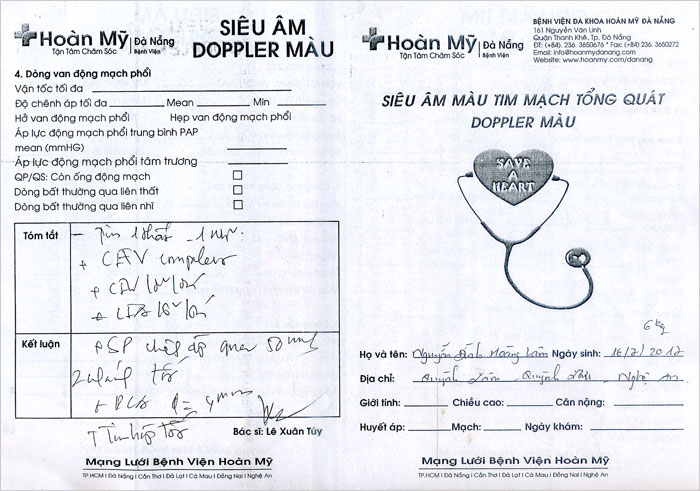 Hoàn Mỹ Đà Nẵng
Tận Tâm Chăm Sóc Bệnh Viện
SIÊU ÂM
DOPPLER MÀU
4. Dòng van động mạch phổi
Vận tốc tối đa
Độ chênh áp tối đa Mean Min
Hở van động mạch phổi Hẹp van động mạch phổi
Áp lực động mạch phổi trung bình PAP
mean (mmHG)
Áp lực động mạch phổi tâm trương
QP/QS: Còn ống động mạch
Dòng bất thường qua liên thất
Dòng bất thường qua liên nhĩ
Tóm tắt
- Tim 1 thất
+ CAV complex
Kết luận
Bác sĩ: Lê Xuân Túy
Mạng Lưới Bệnh Viện Hoàn Mỹ
TP.HCM | Đà Nẵng | Cần Thơ | Đà Lạt | Cà Mau | Đồng Nai | Nghệ An
Hoàn Mỹ Đà Nẵng
Tận Tâm Chăm Sóc Bệnh Viện
BỆNH VIỆN ĐA KHOA HOÀN MỸ ĐÀ NẴNG
161 Nguyễn Văn Linh
Quận Thanh Khê, Tp. Đà Nẵng
ĐT: (+84). 236. 3650676 * Fax: (+84) 236. 3650272
Email: info@hoanmydanang.com
Website: www.hoanmy.com/danang
SIÊU ÂM MÀU TIM MẠCH TỔNG QUÁT
DOPPLER MÀU
SAVE
A
HEART
6 kg
Họ và tên: Nguyễn Đình Hoàng Lâm Ngày sinh: 16/7/2017
Địa chỉ: Quỳnh Lâm - Quỳnh Lưu - Nghệ An
Giới tính: Chiều cao: Cân nặng:
Huyết áp: Mạch: Ngày khám:
Mạng Lưới Bệnh Viện Hoàn Mỹ
TP.HCM | Đà Nẵng | Cần Thơ | Đà Lạt | Cà Mau | Đồng Nai | Nghệ An